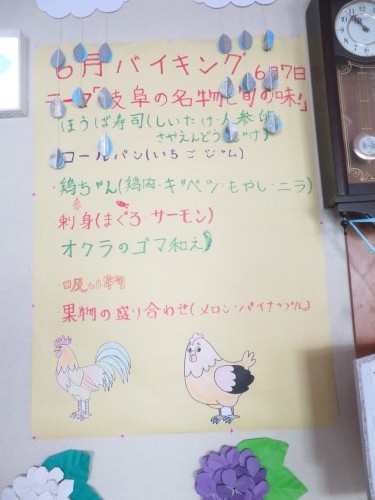 6月バイキング 6月7日
テーマ「岐阜の名物と旬の味!」
ほうば寿司(しいたけ・人参
さやえんどう
ロールパン(いちごジャム)
・鶏ちゃん(鶏肉・キャベツ・もやし・ニラ)
刺身(まぐろ サーモン)
オクラのゴマ和え
・吸い物
・果物の盛り合わせ(メロン・パイナップル)